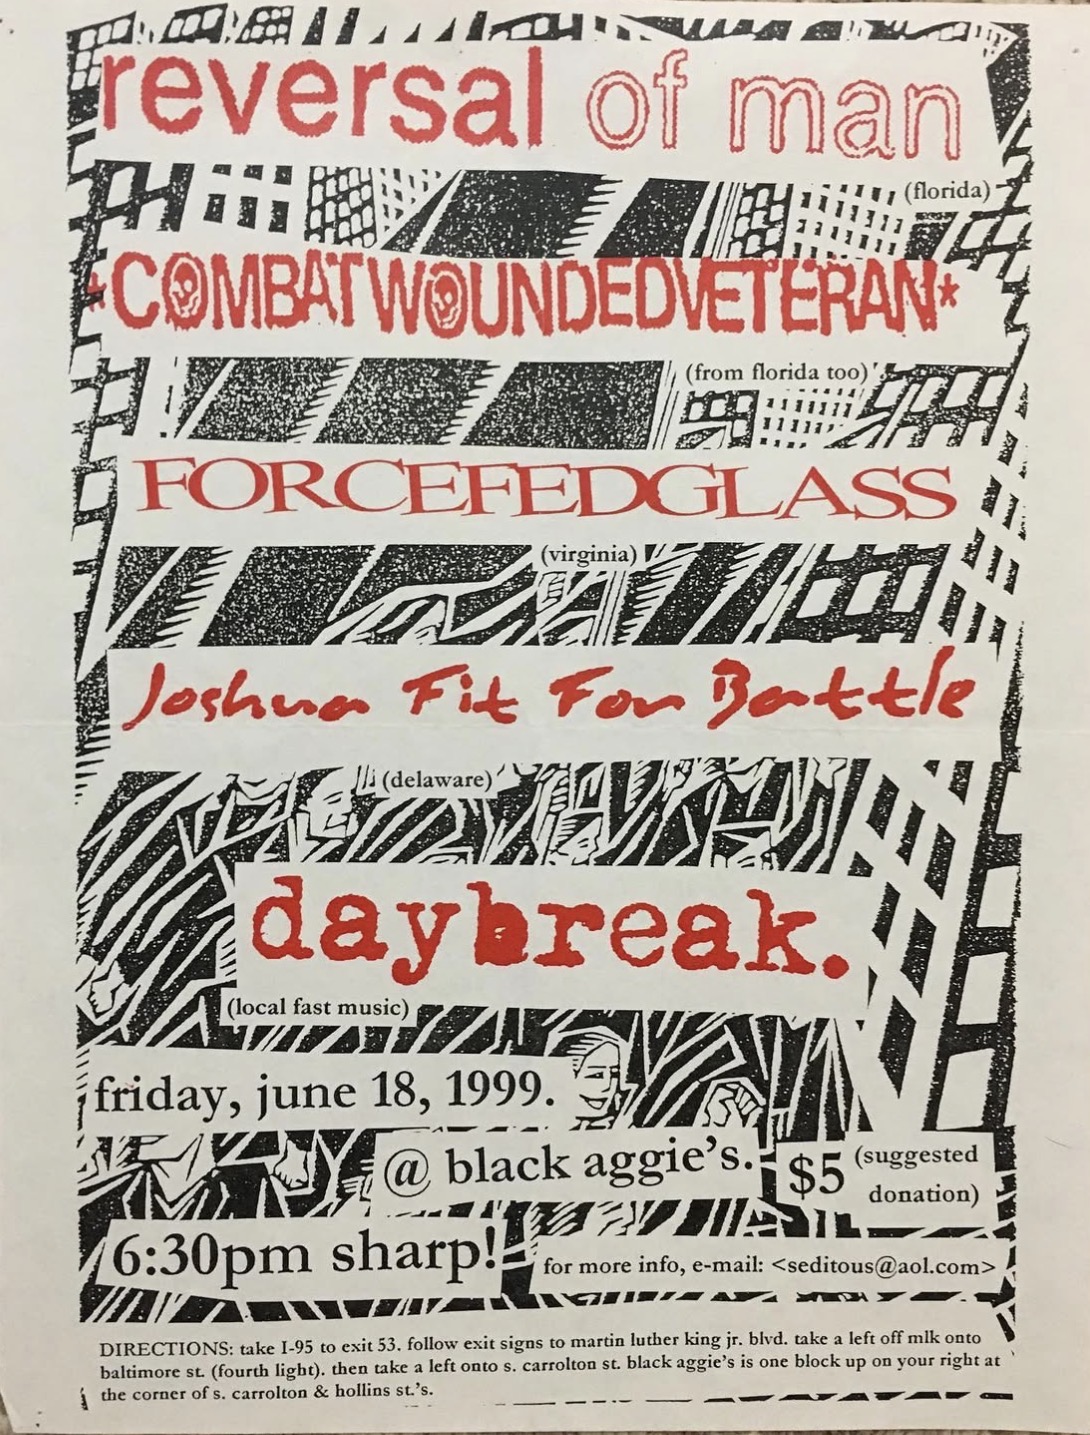 reversal of man
(florida)
*COMBATWOUNDEDVETERAN*
(from florida too)
FORCEFEDGLASS
(virginia)
Joshua Fit For Battle
(delaware)
daybreak.
(local fast music)
friday, june 18, 1999.
@ black aggie's.
$5 (suggested
donation)
6:30pm sharp!
for more info, e-mail: <seditous@aol.com>
DIRECTIONS: take I-95 to exit 53. follow exit signs to martin luther king jr. blvd. take a left off mlk onto
baltimore st. (fourth light). then take a left onto s. carrolton st. black aggie's is one block up on your right at
the corner of s. carrolton & hollins st.'s.